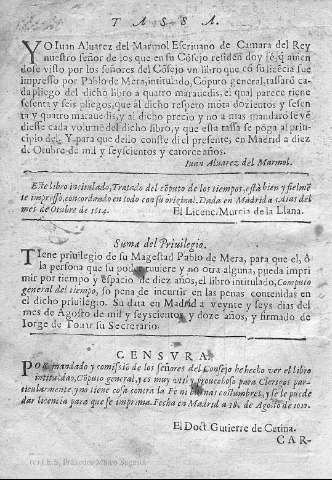 TASSA.
YO Iuan Aluarez del Marmol Escriuano de Camara del Rey
nuestro señor de los que en su Cõsejo residen doy fe, q̃ auien
dose visto por los señores del Cõsejo vn libro que cõ su licẽcia fue
impresso por Pablo de Mera, intitulado, Cõputo general, tassarõ ca-
da pliego del dicho libro a quatro marauedis, el qual parece tiene
sesenta y seis pliegos, que al dicho respeto mõta dozientos y sesen
ta y quatro marauedis, y al dicho precio y no a mas mandarõ se vẽ
diesse cada volumẽ del dicho libro, y que esta tassa se põga al prin-
cipio del. Y para que dello conste di el presente, en Madrid a diez
de Otubre de mil y seyscientos y catorze años.
Iuan Aluarez del Marmol.
Este libro intitulado, Tratado del cõputo de los tiempos, està bien y fielmẽ
te impresso, concordando en todo con su original. Dada en Madrid
mes de Otubre de 1614. El Licenc. Murcia de la Llana.
Suma del Priuilegio.
Tiene priuilegio de su Magestad Pablo de Mera, para que el, ò
la persona que su poder huuiere y no otra alguna, pueda impri
mir por tiempo y espacio de diez años, el libro intitulado, Computo
general del tiempo, so pena de incurrir en las penas contenidas en
el dicho priuilegio. Su data en Madrid a veynte y seys dias del
mes de Agosto de mil y seyscientos y doze años, y firmado de
Iorge de Touar su Secretario.
CENSVRA.
POR mandado y comissiõ de los señores del Consejo he hecho ver el libro
intitulado, Cõputo general, y es muy vtil y prouechoso para Clerigos par-
ticularmente, y no tiene cosa contra la Fè ni buenas costumbres, y se le puede
dar licencia para que se imprima. Fecha en Madrid a 18. de Agosto de
El Doct. Gutierre de Cetina.
CAR-